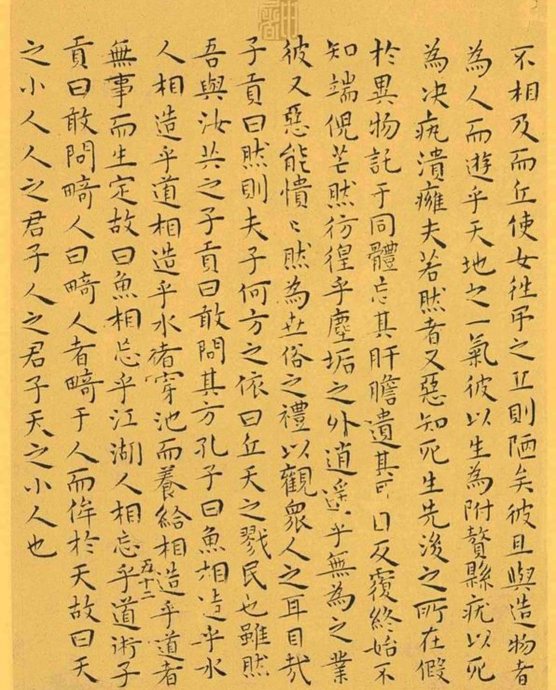 不相及而丘使女往弔之丘則陋矣彼且與造物者
為人而遊乎天地之一氣彼以生為附贅縣疣以死
為决疣潰癰夫若然者又惡知死生先後之所在假
於異物託于同體忘其肝膽遺其耳目反覆終始不
知端倪芒然彷徨乎塵垢之外逍遥乎無為之業
彼又惡能憒〻然為世俗之禮以觀衆人之耳目哉
子貢曰然則夫子何方之依曰丘天之戮民也雖然
吾與汝共之子貢曰敢問其方孔子曰魚相造乎水
人相造乎道相造乎水者穿池而養給相造乎道者
無事而生定故曰魚相忘乎江湖人相忘乎道術子
貢曰敢問畸人曰畸人者畸于人而侔於天故曰天
之小人人之君子人之君子天之小人也